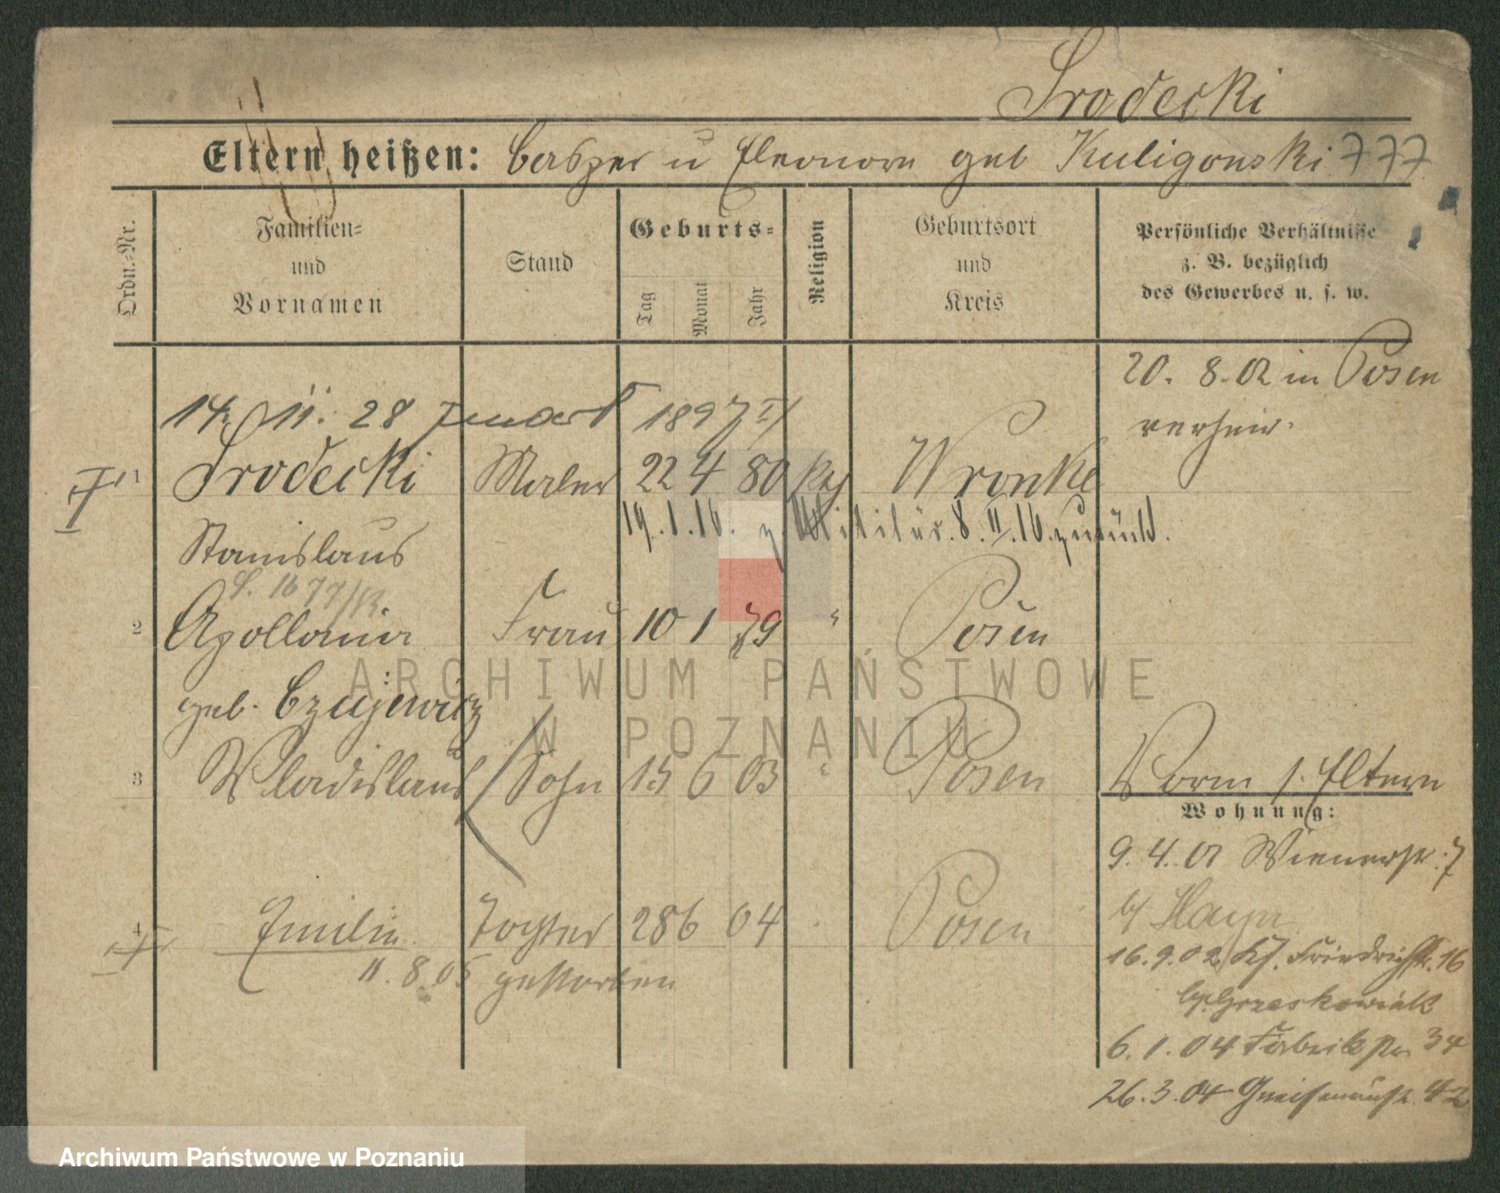 Srodecki
Eltern heißen: Casper u Eleonore geb Kuligowski 777
Ordn.-Nr.
Familien- und Vornamen
Stand
Geburts-
Tag Monat Jahr
Religion
Geburtsort und Kreis
Persönliche Verhältnisse
z. B. bezüglich
des Gewerbes u. s. w.
20. 8. 02 in Posen
verheir.
14. 11. 28 1897
1 Srodecki Maler 22 4 80 Wronke
19. 1. 16. z. Militär. 8. II. 16. zurück.
Stanislaus
2 Apollonia Frau 10 1 79 " Posen
geb. Czujewicz
3 Wladislaus Sohn 15 6 03 " Posen
Vorm s. Eltern
Wohnung:
9. 4. 01 Wienerstr. 7
b/
4 Emilie Tochter 28 6 04 Posen
11. 8. 05 gestorben
16. 9. 02 Kl. Friedrichstr. 16
b/ Grzeskowiak
6. 1. 04 Fabrikstr. 34
26. 3. 04 Gneisenaustr. 42
ARCHIWUM PAŃSTWOWE
W POZNANIU
Archiwum Państwowe w Poznaniu